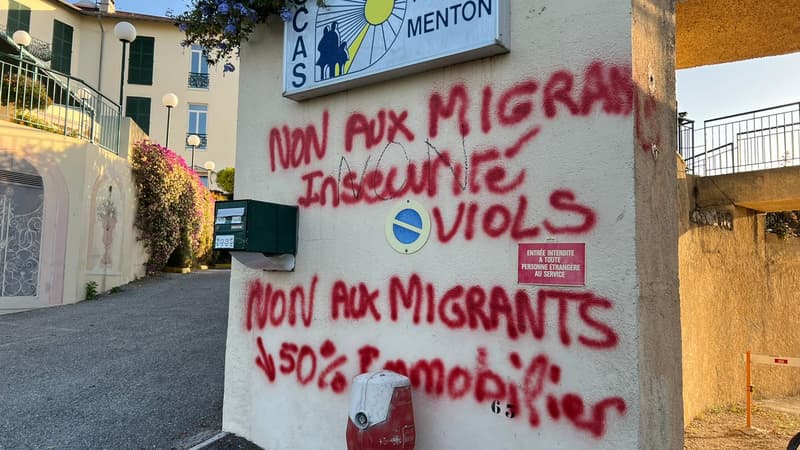 CCAS
MENTON
NON AUX MIGRAN
NON
Insécurité
VIOLS
ENTRÉE INTERDITE
A TOUTE
PERSONNE ÉTRANGÈRE
AU SERVICE
NON AUX MIGRANTS
↓50% Immobilier
63